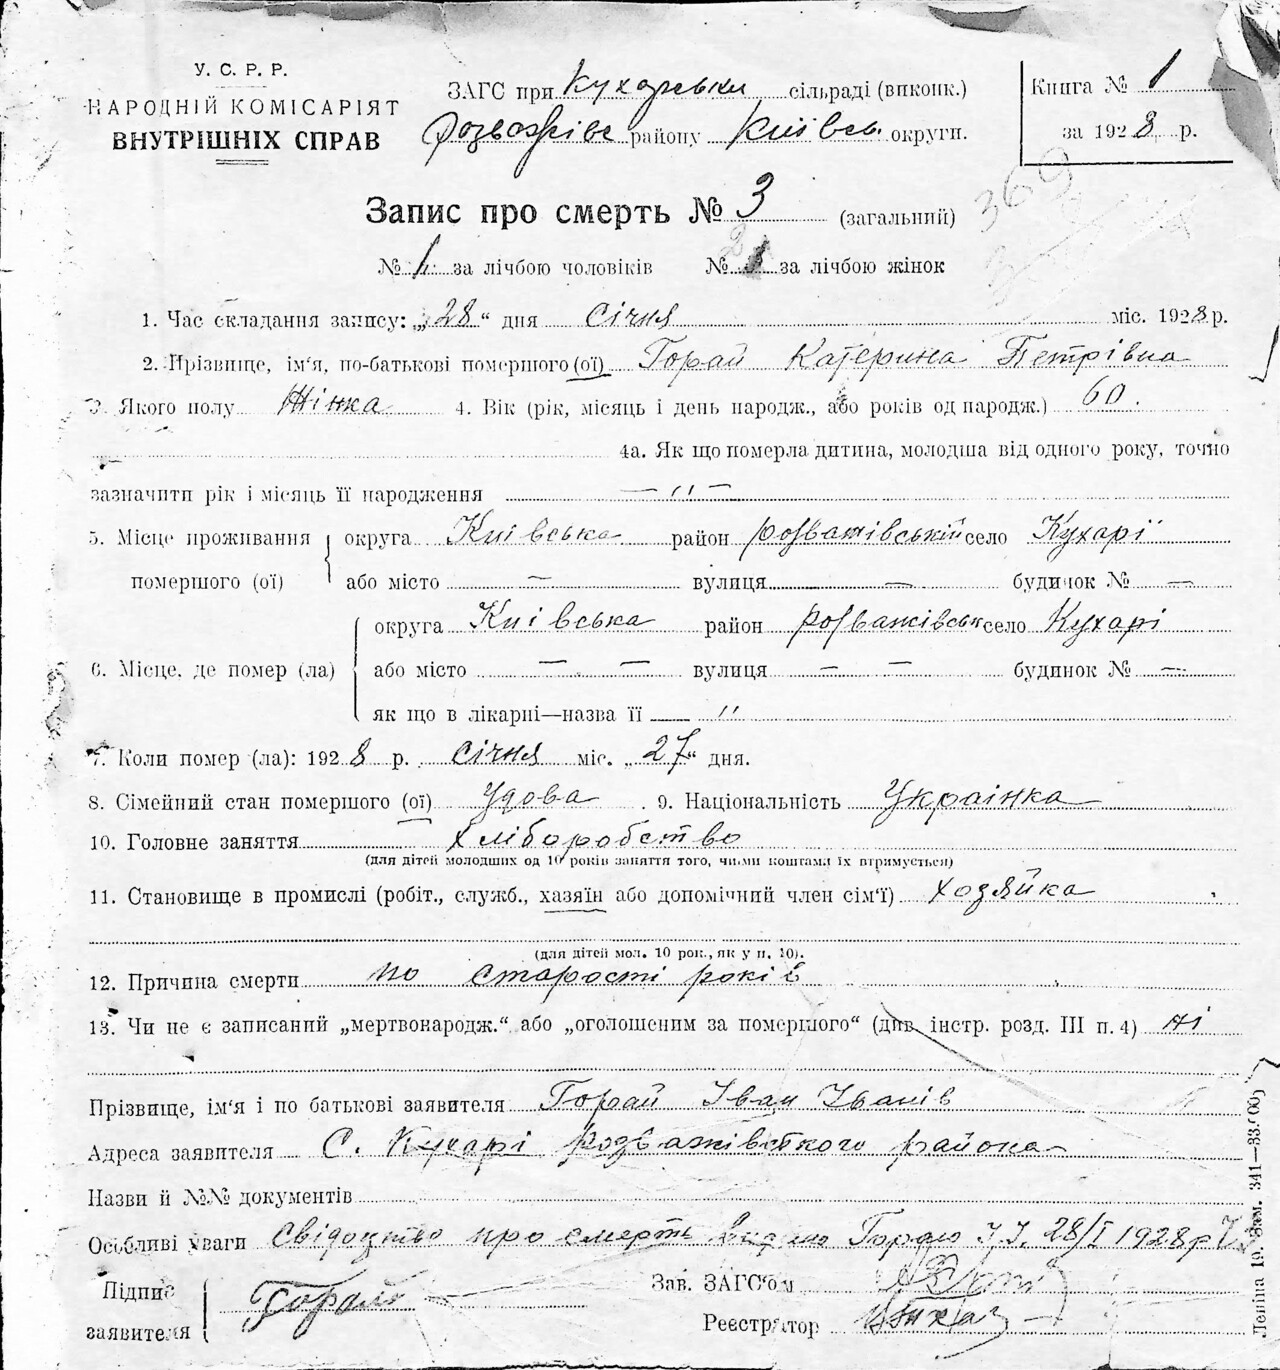 У. С. Р. Р.
НАРОДНІЙ КОМІСАРІЯТ
ВНУТРІШНІХ СПРАВ
ЗАГС при Кухарськи сільраді (виконк.)
Розважівс району Київсь. округи.
Книга № 1
за 1928 р.
Запис про смерть № 3 (загальний)
369
№ 1 за лічбою чоловіків № 2 за лічбою жінок
1. Час складання запису: „28“ дня січня міс. 1928 р.
2. Прізвище, ім'я, по-батькові помершого (ої) Горай Катерина Петрівна
3. Якого полу Жінка 4. Вік (рік, місяць і день народж., або років од народж.) 60.
4а. Як що померла дитина, молодша від одного року, точно
зазначити рік і місяць її народження — „ —
5. Місце проживання округа Київська район розважівський село Кухарі
помершого (ої) або місто — вулиця — будинок № —
округа Київська район розважівськ село Кухарі
6. Місце, де помер (ла) або місто — — вулиця — — будинок № —
як що в лікарні—назва її — „
7. Коли помер (ла): 1928 р. січня міс. „27“ дня.
8. Сімейний стан помершого (ої) Удова 9. Національність Українка
10. Головне заняття хліборобство
(для дітей молодших од 10 років заняття того, чиїми коштами їх втримується)
11. Становище в промислі (робіт., служб., хазяїн або допомічний член сім'ї) хозяйка
(для дітей мол. 10 рок., як у п. 10).
12. Причина смерти по старості років
13. Чи не є записаний „мертвонародж.“ або „оголошеним за помершого“ (див. інстр. розд. III п. 4) ні
Прізвище, ім'я і по батькові заявителя Горай Іван Іванів
Адреса заявителя С. Кухарі розважівсткого района
Назви й №№ документів
Особливі уваги Свідоцтво про смерть видано Гораю І. І. 28/I 1928 р
Підпис
заявителя Горай
Зав. ЗАГС'ом
Реєстратор
Леніна 19. Зам. 341—33.000